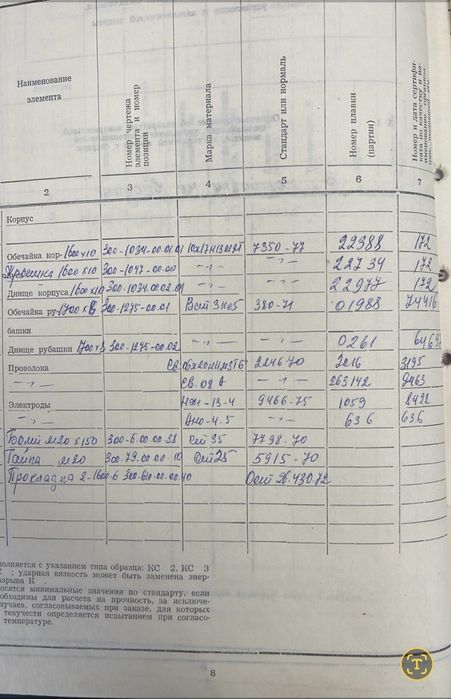 Наименование элемента
Номер чертежа элемента и номер позиции
Марка материала
Стандарт или нормаль
Номер плавки (партии)
2 3 4 5 6 7
Корпус
Обечайка кор- 1600х10 300-1034-00.01.01 10х17Н13М2Т 7350-77 22388 172
Крышка 1600х10 300-1047-00.00 -"- -"- 22734 172
Днище корпуса 1600х10 300-1034.00.02.01 -"- -"- 22977 172
Обечайка ру- 1700х8 300-1275-00.01 Вст3сп5 380-71 01988 74416
башки
Днище рубашки 1700х8 300-1275-00.02 -"- -"- 0261
Проволока 2246-70 3195
-"- Св-08А -"- 263142 9463
Электроды 9466-75 1059
-"- Ано-4.5 -"- 636 636
Болт м20х150 300-6.00.00.38 Ст35 7798-70
Гайка м20 300-79.00.00.10 Ст25 5915-70
Прокладка 2-1600-6 Ост 26.430.72
полняется с указанием типа образца: КС 2, КС 3
; ударная вязкость может быть заменена энер-
зрыва К
осятся минимальные значения по стандарту, если
обходимы для расчета на прочность, за исключе-
лучаев, согласовываемых при заказе, для которых
текучести определяется испытанием при согласо-
температуре.
8